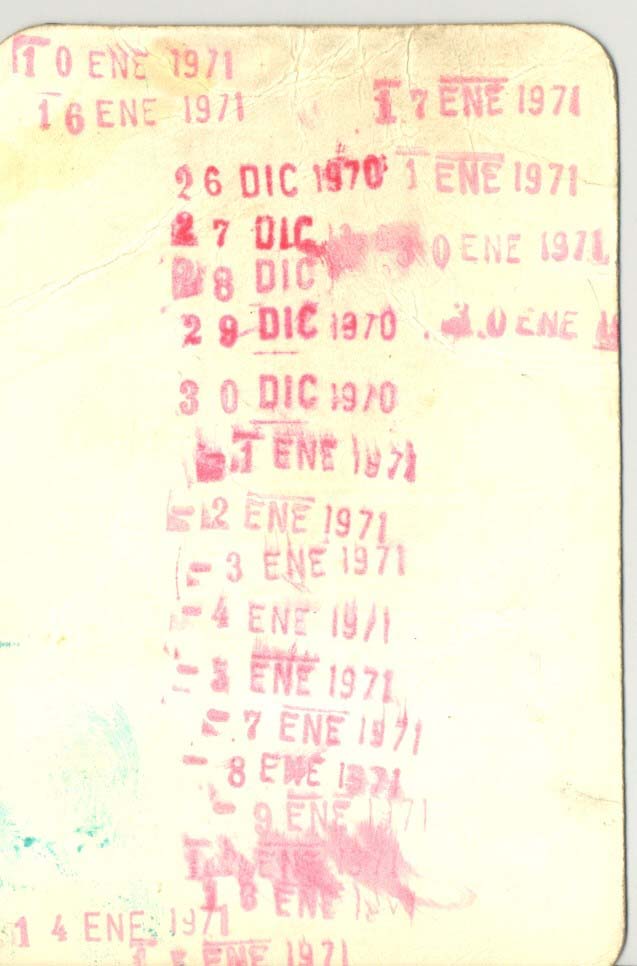 10 ENE 1971
16 ENE 1971
17 ENE 1971
26 DIC 1970
1 ENE 1971
27 DIC
0 ENE 1971
28 DIC
29 DIC 1970
30 ENE
30 DIC 1970
-1 ENE 1971
-2 ENE 1971
-3 ENE 1971
-4 ENE 1971
-5 ENE 1971
-7 ENE 1971
-8 ENE 1971
-9 ENE 1971
ENE
ENE
14 ENE 1971
ENE 1971